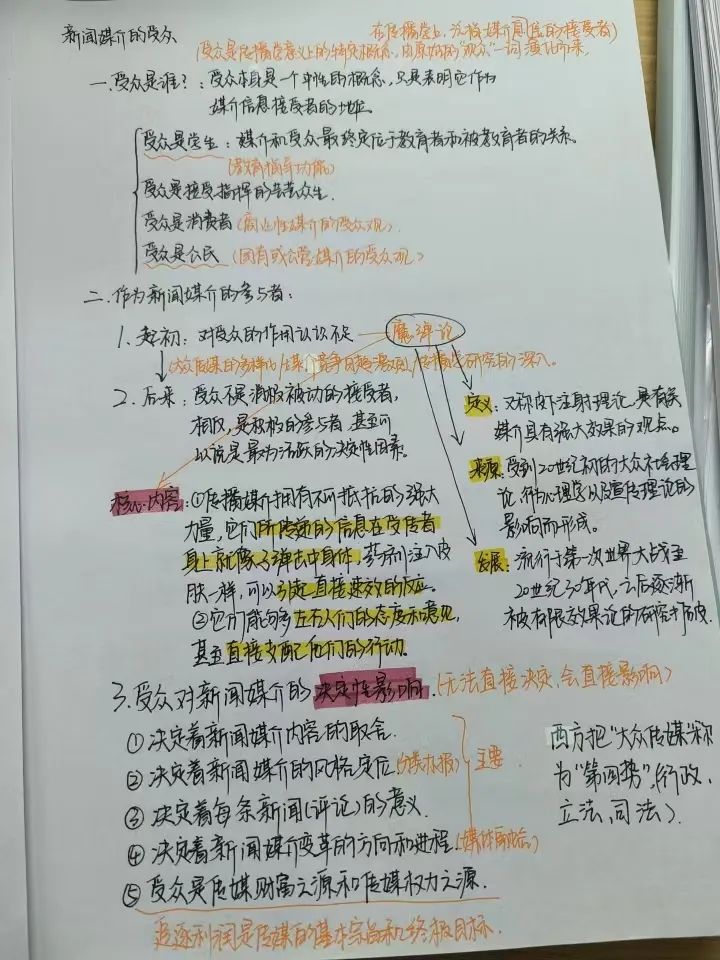 新闻媒介的受众
在传播学上,泛指媒介信息的接受者)
(受众是传播学意义上的特定概念,由原始的“观众”一词演化而来.
一.受众是谁?:受众本身是一个中性的概念,只是表明它作为
媒介信息接受者的地位。
受众是学生:媒介和受众最终定位于教育者和被教育者的关系。
(教育指导功能)
受众是接受指挥的芸芸众生.
受众是消费者(商业性媒介的受众观).
受众是公民(国有或公营媒介的受众观.)
二.作为新闻媒介的参与者:
1.起初:对受众的作用认识不足
魔弹论
(大众传媒的多样化,媒介竞争日趋激烈,传播学研究的深入。
2.后来:受众不是消极被动的接受者,
相反,是积极的参与者,甚至可
以说是最为活跃的决定性因素。
定义:又称皮下注射理论,具有关
媒介具有强大效果的观点。
来源:受到20世纪初的大众社会理
论,行为心理学以及宣传理论的
影响而形成。
发展:流行于第一次世界大战至
20世纪30年代,之后逐渐
被有限效果论的研究打破.
核心内容:①传播媒介拥有不可抵抗的强大
力量,它们所传递的信息在受传者
身上就像子弹击中身体,药剂注入皮
肤一样,可以引起直接速效的反应。
②它们能够左右人们的态度和意见,
甚至直接支配他们的行动.
3.受众对新闻媒介的决定性影响.(无法直接决定,会直接影响)
①决定着新闻媒介内容的取舍.
②决定着新闻媒介的风格定位(分众办报)
主要
③决定着每条新闻(评论)的意义.
④决定着新闻媒介变革的方向和进程.(媒体融合)
⑤受众是传媒财富之源和传媒权力之源.
追逐利润是传媒的基本宗旨和终极目标.
西方把“大众传媒”称
为“第四势”,(行政、
立法、司法).